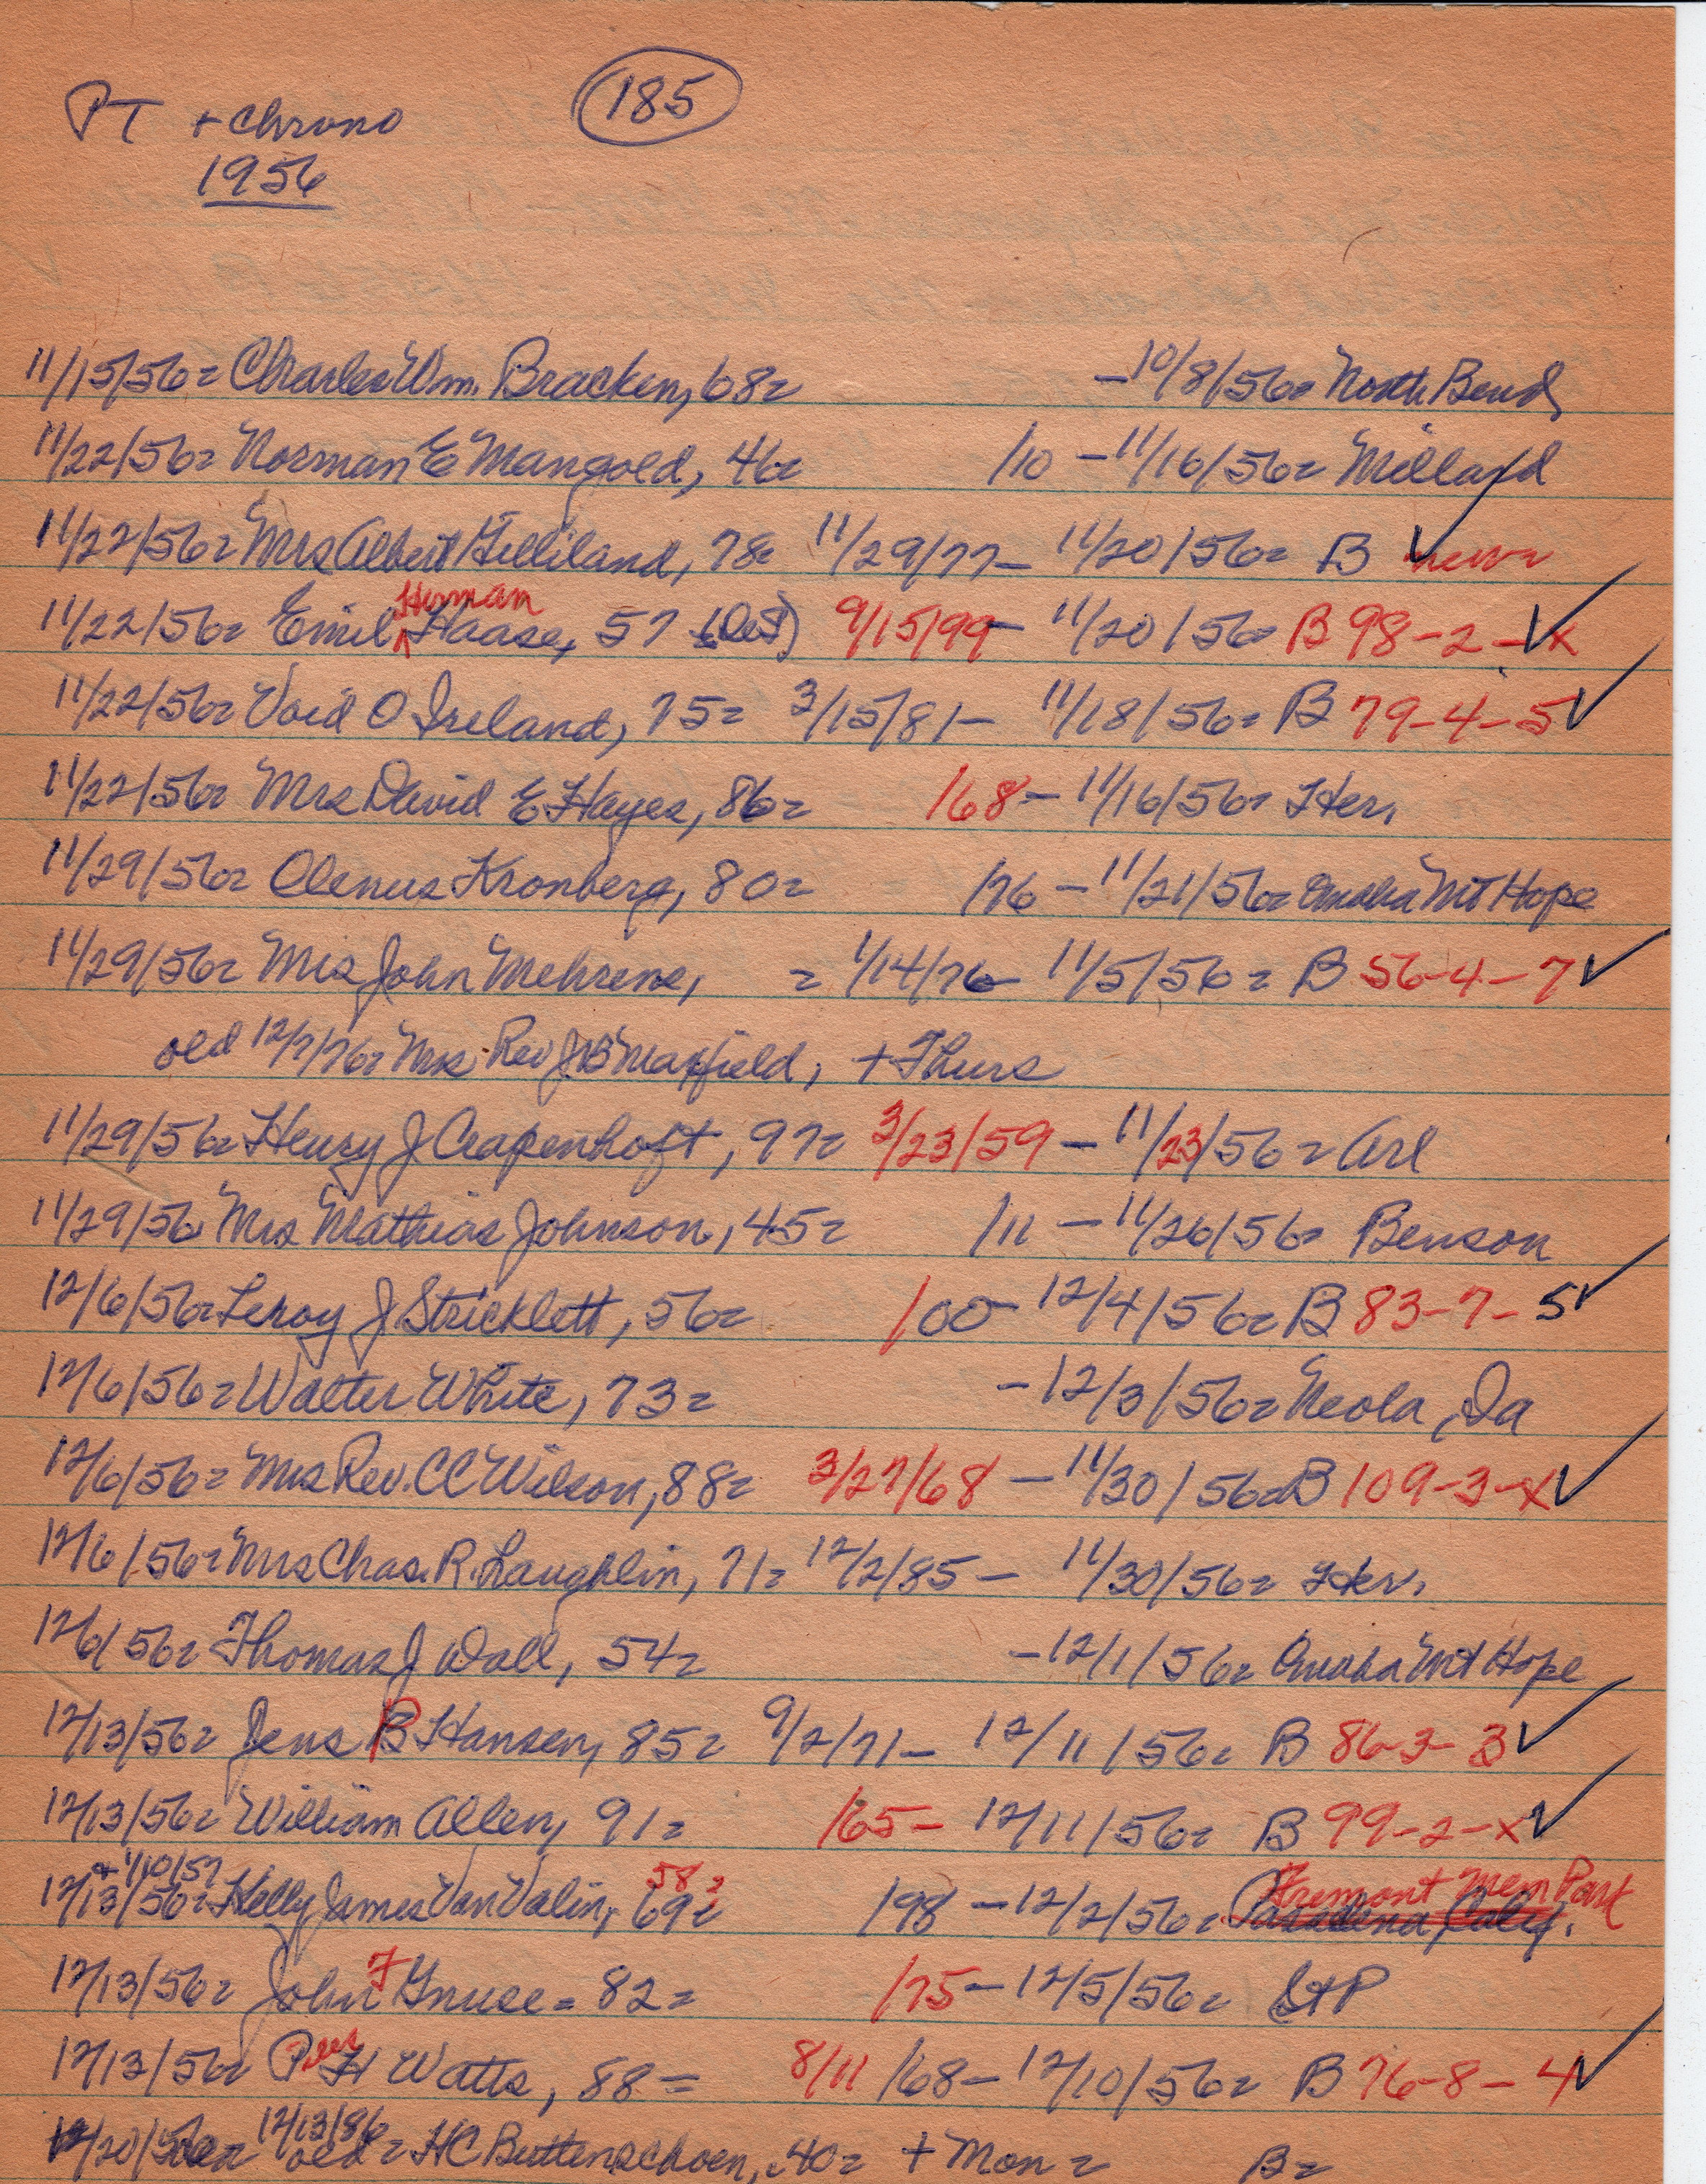 PT + Chrono
185
1956
11/15/56= Charles Wm. Bracken, 68= - 10/8/56= North Bend
11/22/56= Norman E Mangold, 46= /10 - 11/16/56= Millard
11/22/56= Mrs Albert Gilliland, 78= 11/29/77- 11/20/56= B ✓
11/22/56= Emil Herman Haase, 57 9/15/99- 11/20/56= B 98-2-x ✓
11/22/56= Void O Ireland, 75= 3/15/81- 11/18/56= B 79-4-5 ✓
11/22/56= Mrs David E Hayes, 86= /68- 11/16/56= Her.
11/29/56= Olenus Kronberg, 80= /76 - 11/21/56= Omaha Mt Hope
11/29/56= Mrs John Mehrens, = 1/14/76- 11/5/56= B 56-4-7 ✓
old 12/7/76= Mrs Rev JB Maxfield, + Thurs
11/29/56= Henry J Crapenhoft, 97= 3/23/59 - 11/23/56= Arl
11/29/56 Mrs Mathias Johnson, 45= /11 - 11/26/56= Benson
12/6/56= Leroy J Stricklett, 56= /00- 12/4/56= B 83-7-5 ✓
12/6/56= Walter White, 73= - 12/3/56= Neola, Ia
12/6/56= Mrs Rev. CC Wilson, 88= 3/27/68 - 11/30/56= B 109-3-x ✓
12/6/56= Mrs Chas. R. Laughlin, 71= 12/2/85 - 11/30/56= Her.
12/6/56= Thomas J Wall, 54= - 12/1/56= Omaha Mt Hope
12/13/56= Jens P Hansen, 85= 9/2/71- 12/11/56= B 86-3-3 ✓
12/13/56= William Allen, 91= /65- 12/11/56= B 99-2-x ✓
+ 1/10/57 58= Fremont Mem Park
12/13/56= Kelly James VanValin, 69= /98 - 12/2/56= Pasadena, Calif.
12/13/56= John F Gnuse = 82= /75- 12/5/56=
12/13/56= P H Watts, 88= 8/11/68- 12/10/56= B 76-8-4 ✓
12/20/56= 12/13/86 old= HC Buttenschoen, 40= + Mon= B=